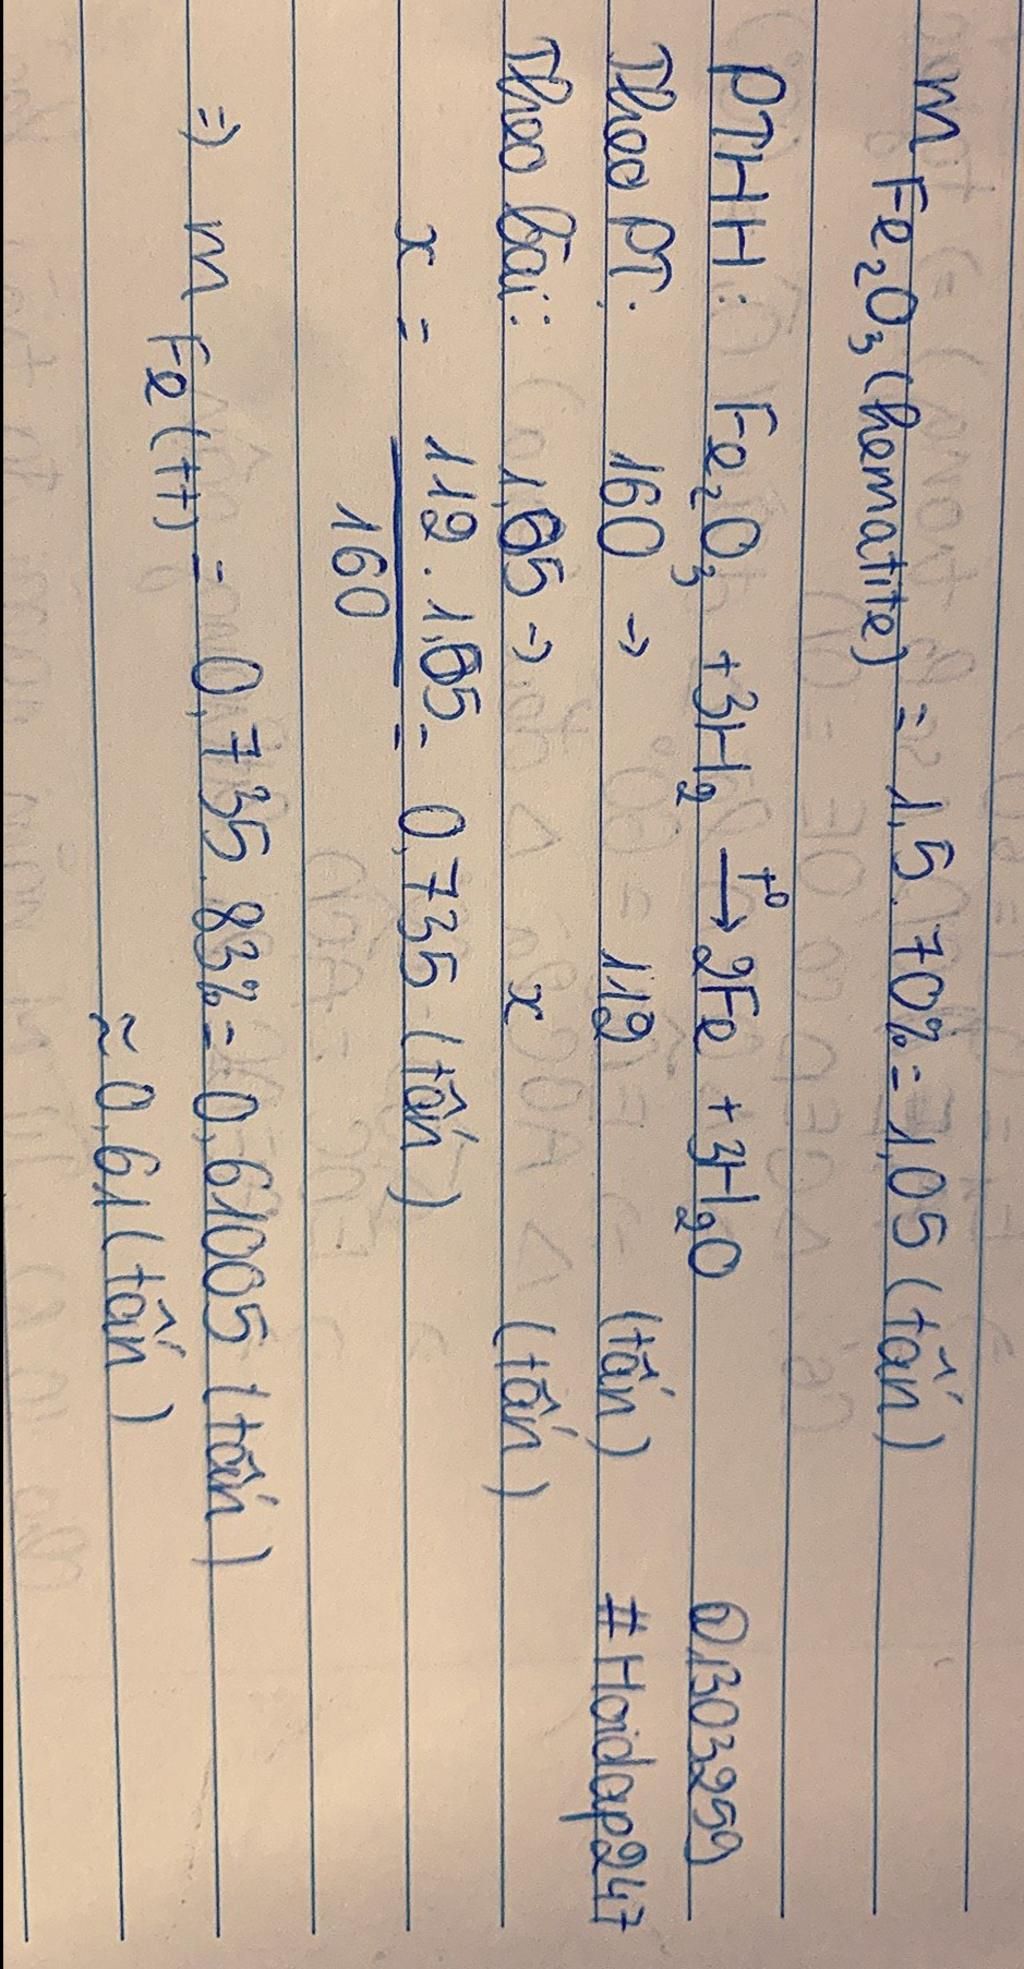 m Fe₂O₃ (hematite) = 1,5. 70% = 1,05 (tấn)
PTHH: Fe₂O₃ + 3H₂ →t⁰ 2Fe + 3H₂O
Theo PT: 160 → 112 (tấn)
Theo bài: 1,05 → x (tấn)
x = 112 . 1,05 / 160 = 0,735 (tấn)
⇒ m Fe (tt) = 0,735. 83% = 0,61005 (tấn)
≈ 0,61 (tấn)
@1303259
#Hoidap247